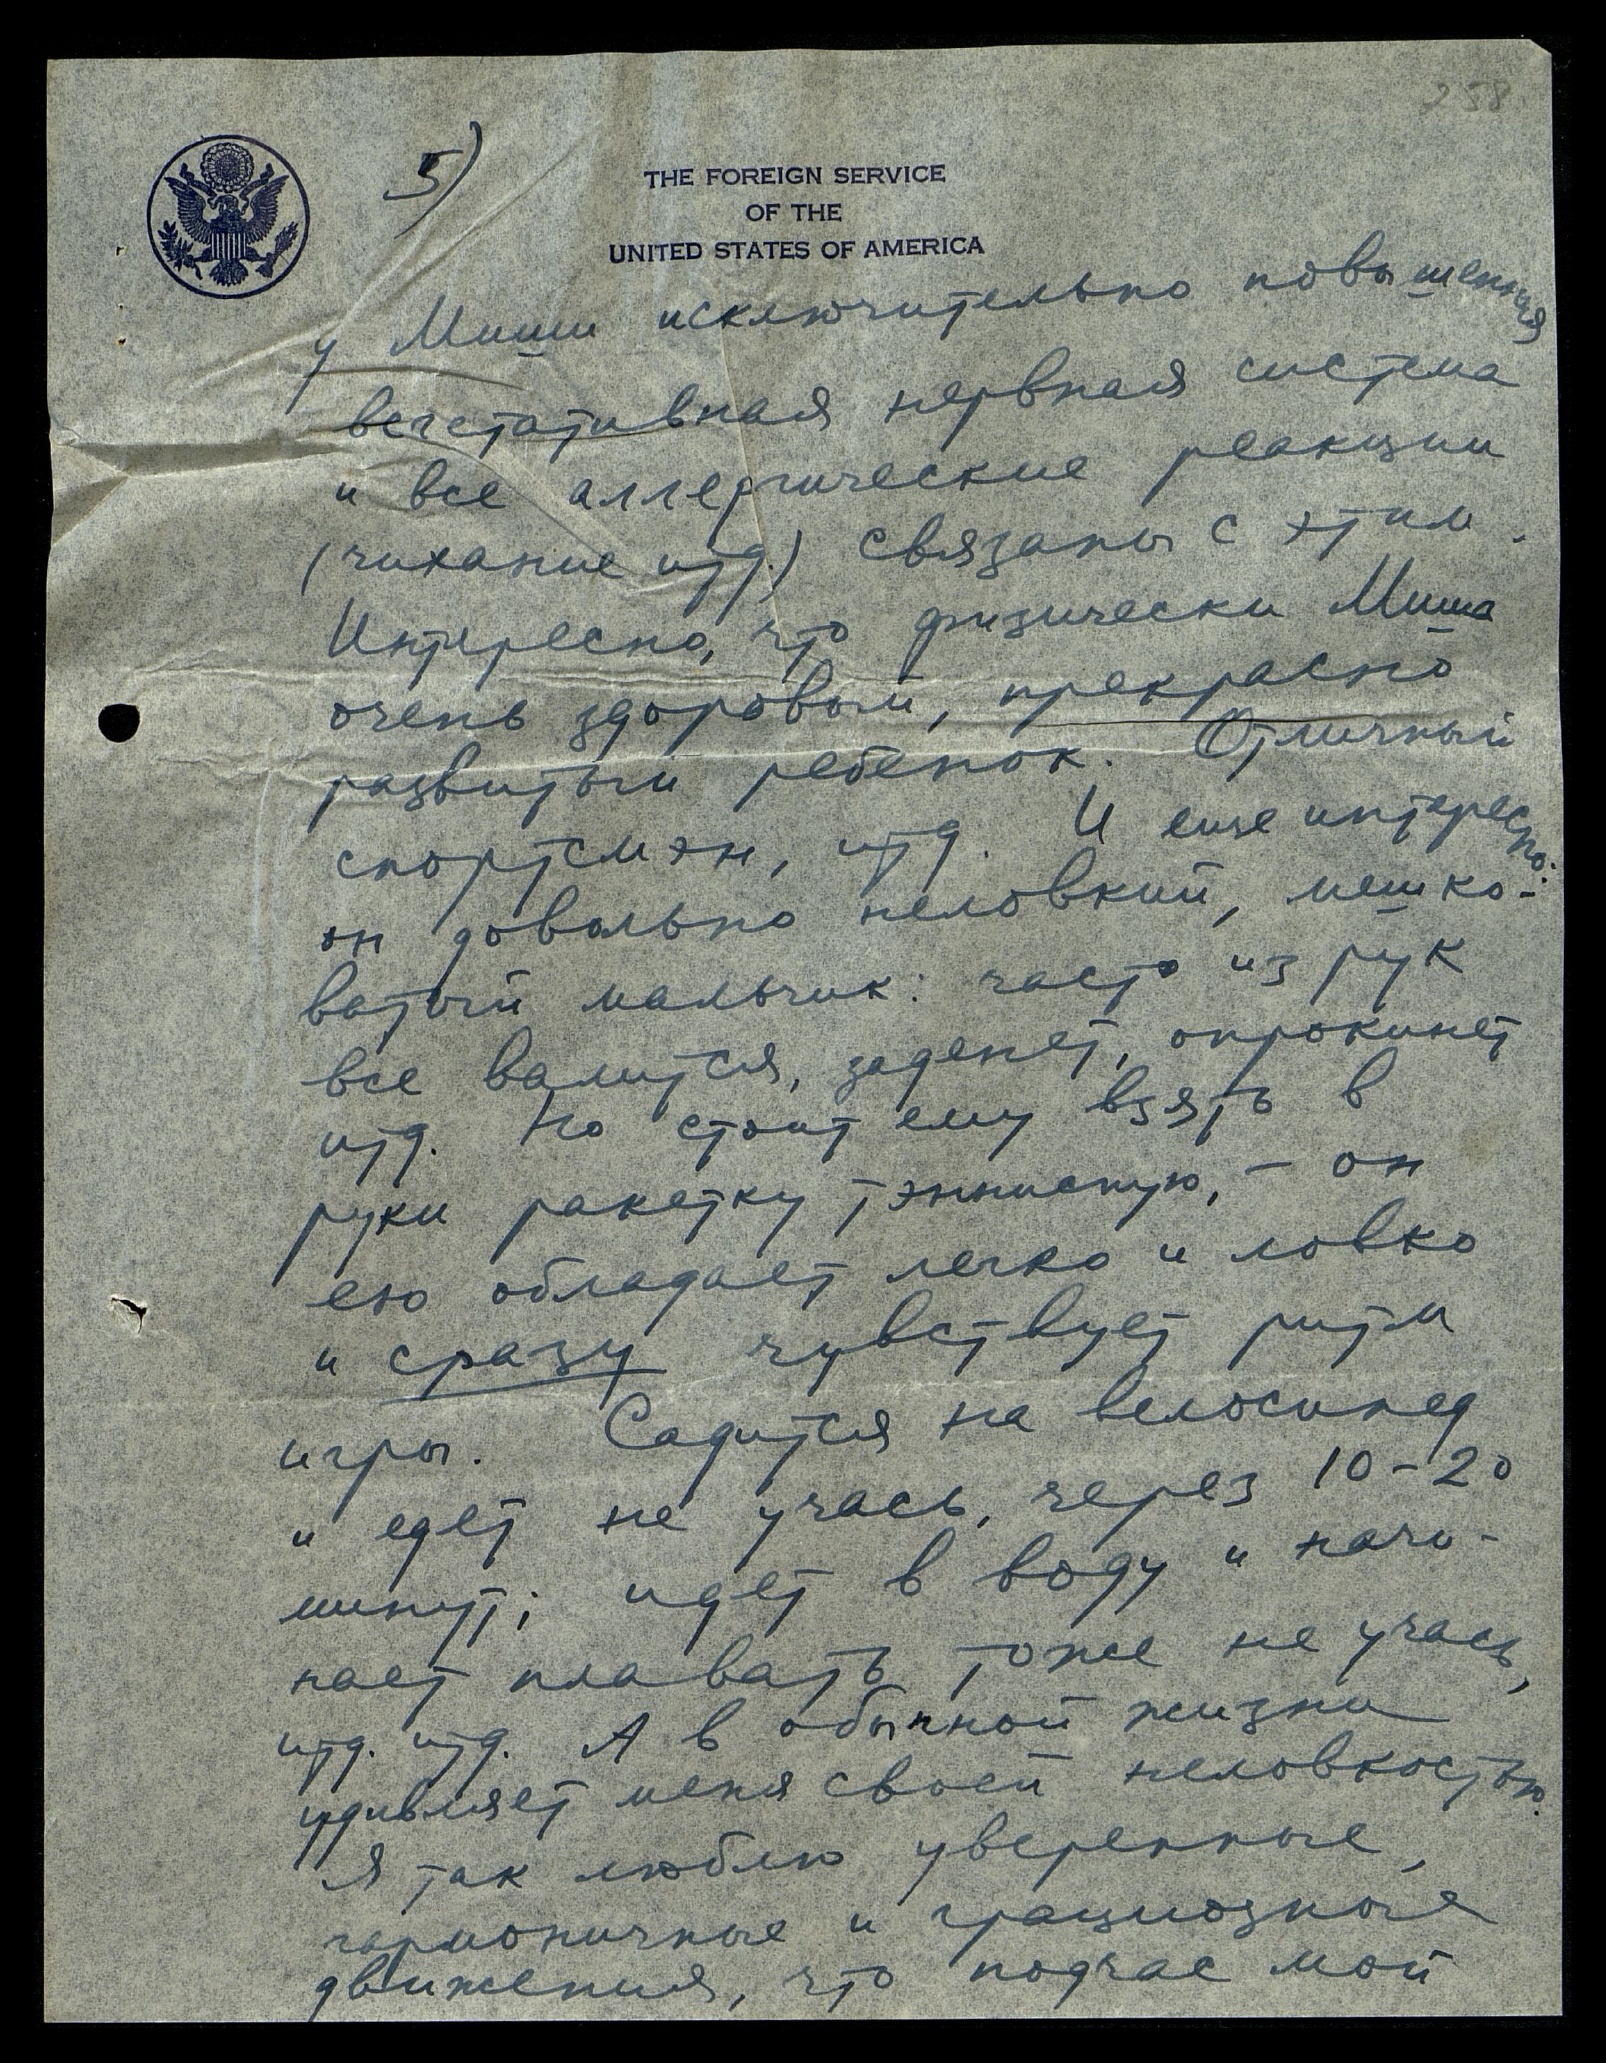 258
5)
THE FOREIGN SERVICE
OF THE
UNITED STATES OF AMERICA
у Миши исключительно повышенная
вегетативная нервная система
и все аллергические реакции
(чихание итд.) связаны с этим.
Интересно, что физически Миша
очень здоровый, прекрасно
развитый ребенок. Отличный
спортсмэн, итд. И еще интересно:
он довольно неловкий, мешко-
ватый мальчик: часто из рук
все валится, заденет, опрокинет
итд. Но стоит ему взять в
руки ракетку тэннисную, – он
ею обладает легко и ловко
и сразу чувствует ритм
игры. Садится на велосипед
и едет не учась, через 10–20
минут; идет в воду и начи-
нает плавать тоже не учась,
итд. итд. А в обычной жизни
удивляет меня своей неловкостью.
Я так люблю уверенные,
гармоничные и грациозные
движения, что подчас мой